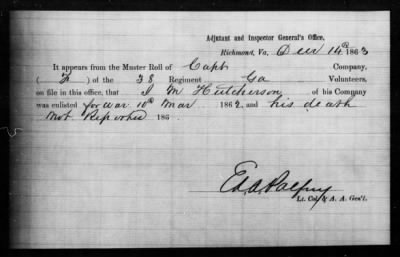 Adjutant and Inspector General's Office,
Richmond, Va, Dec 14th 1863
It appears from the Muster Roll of Capt Company,
( F ) of the 38 Regiment Ga Volunteers,
on file in this office, that J M Hutcherson of his Company
was enlisted for war 10th Mar 1862, and his death
not Reported 186
Ed. A. Palfrey
Lt. Col. & A. A. Gen'l.